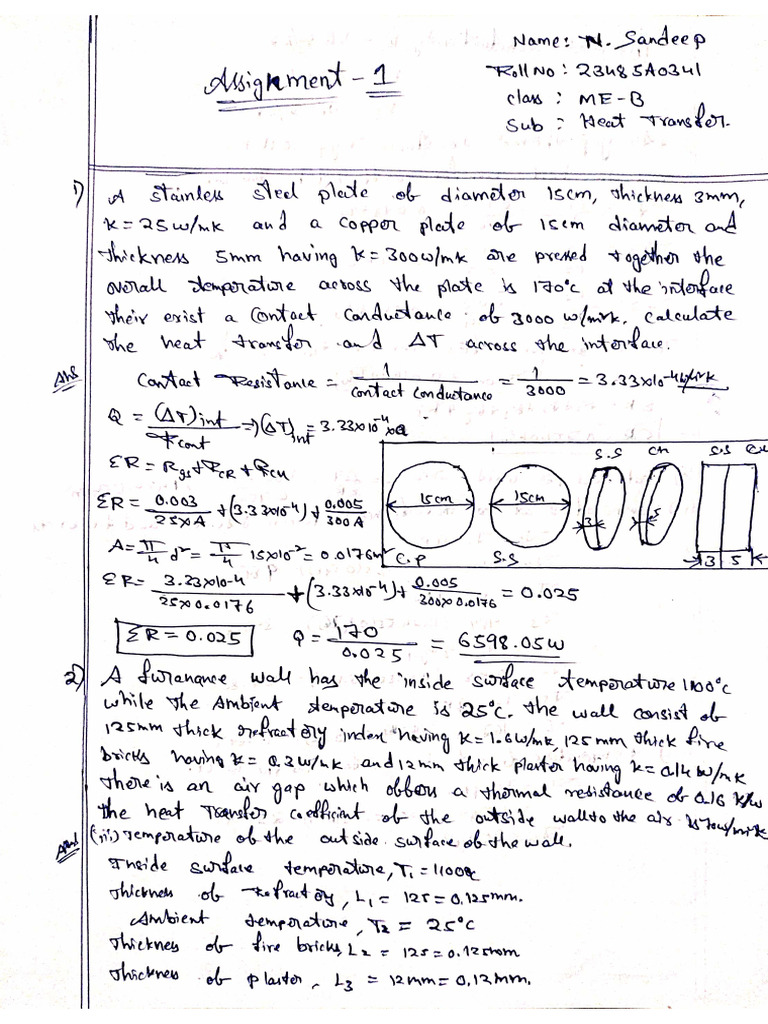 Name: N. Sandeep
Assignment - 1
Roll No: 23485A0341
class: ME-B
Sub: Heat Transfer.
1) A stainless steel plate of diameter 15cm, thickness 3mm,
K=25w/mk and a copper plate of 15cm diameter and
thickness 5mm having K=300w/mk are pressed together the
overall temperature across the plate is 170°c at the interface
their exist a contact conductance of 3000 w/m²k. calculate
the heat transfer and ΔT across the interface.
Ans
Contact Resistance = 1/contact conductance = 1/3000 = 3.33x10⁻⁴
Q = (ΔT)int/Rcont => (ΔT)int = 3.33x10⁻⁴xQ
ΣR = Rgs + RCR + RCu
S.S Cu S.S Cu
15cm 15cm 3 5
ΣR = 0.003/25xA + (3.33x10⁻⁴) + 0.005/300A
A = π/4 d² = π/4 15x10⁻² = 0.0176m²
C.P S.S 3 5
ΣR = 3.23x10-4/25x0.0176 + (3.33x10⁻⁴) + 0.005/300x0.0176 = 0.025
ΣR = 0.025 Q = 170/0.025 = 6598.05w
2) A furanance wall has the inside surface temperature 1100°c
while the Ambient temperature is 25°c. the wall consist of
125mm thick refractory index having K=1.6w/mk, 125mm thick fire
bricks having K= 0.3w/mk and 12mm thick plaster having K= 0.14w/mk
there is an air gap which offers a thermal resistance of 0.16 K/w
the heat Transfer coefficient of the outside wall to the air is
(ii) Temperature of the outside surface of the wall.
Inside surface temperature, T₁ = 1100
thickness of Refractory, L₁ = 125 = 0.125mm.
Ambient temperature, T₂ = 25°c
thickness of fire bricks, L₂ = 125 = 0.125mm
thickness of plaster, L₃ = 12mm = 0.12mm.